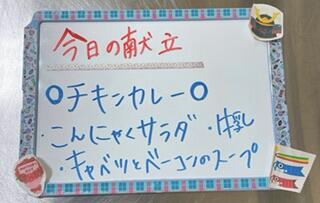 今日の献立
○チキンカレー○
・こんにゃくサラダ ・牛乳
・キャベツとベーコンのスープ